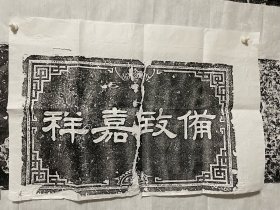 備致嘉祥